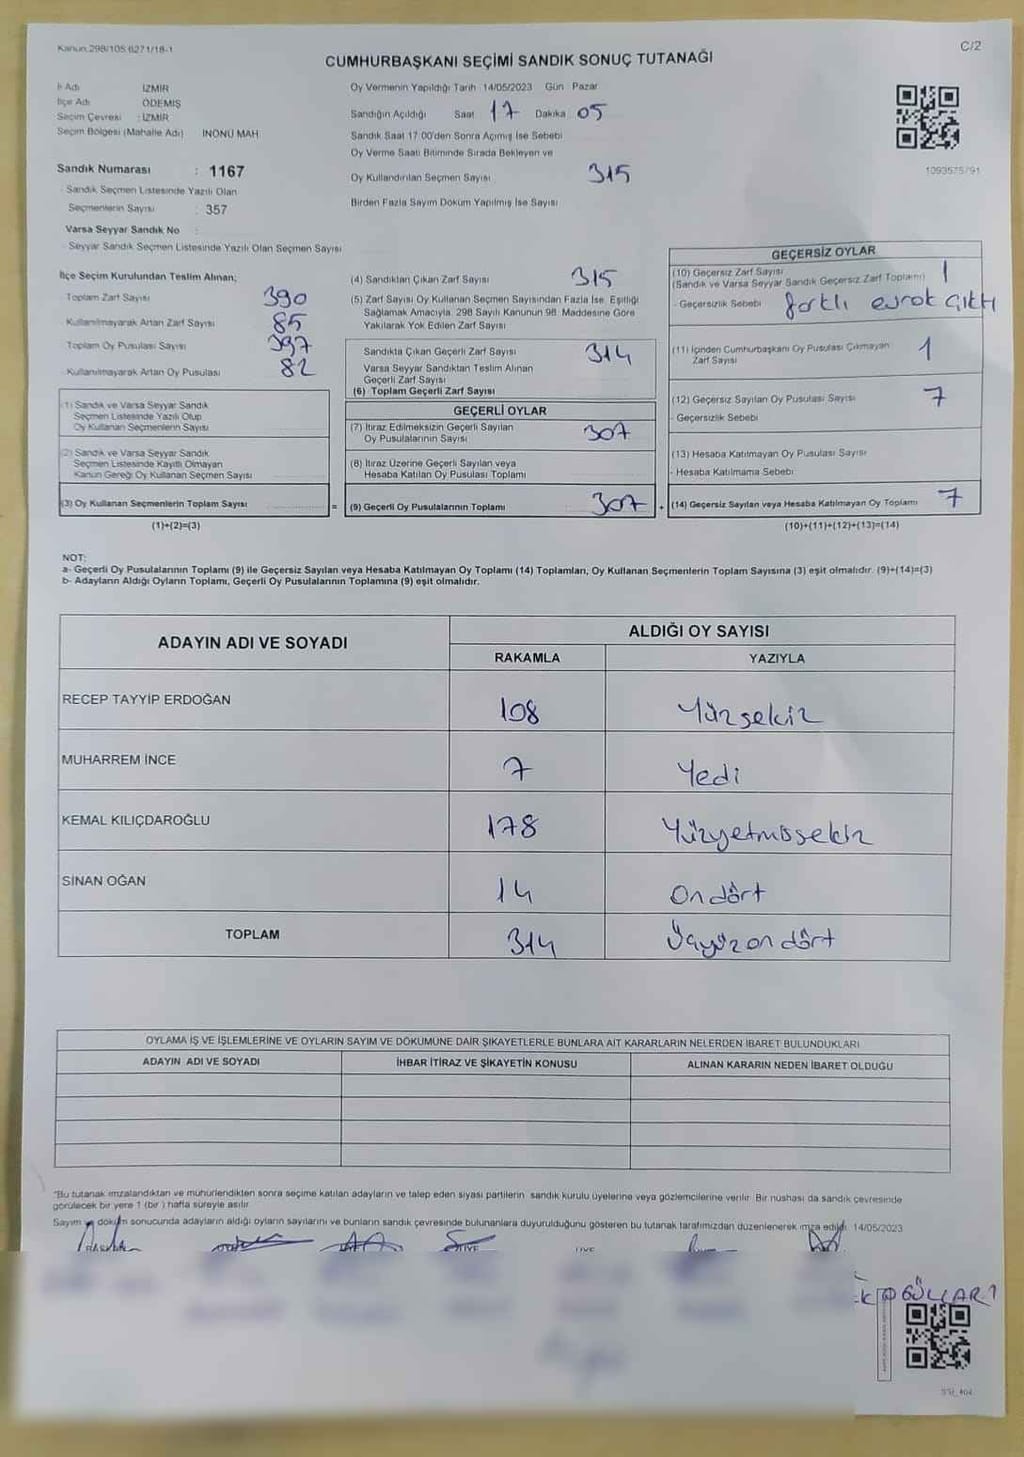 Kanun.298/105 6271/18-1
C/2
CUMHURBAŞKANI SEÇİMİ SANDIK SONUÇ TUTANAĞI
İl Adı İZMİR
İlçe Adı ÖDEMİŞ
Seçim Çevresi : İZMİR
Seçim Bölgesi (Mahalle Adı) İNÖNÜ MAH.
Oy Vermenin Yapıldığı Tarih 14/05/2023 Gün Pazar
Sandığın Açıldığı Saat 17 Dakika 05
Sandık Saat 17:00'den Sonra Açılmış İse Sebebi
Oy Verme Saati Bitiminde Sırada Bekleyen ve
Oy Kullandırılan Seçmen Sayısı 315
Birden Fazla Sayım Döküm Yapılmış İse Sayısı
1093575791
Sandık Numarası : 1167
- Sandık Seçmen Listesinde Yazılı Olan
Seçmenlerin Sayısı : 357
Varsa Seyyar Sandık No :
- Seyyar Sandık Seçmen Listesinde Yazılı Olan Seçmen Sayısı
İlçe Seçim Kurulundan Teslim Alınan;
- Toplam Zarf Sayısı 390
- Kullanılmayarak Artan Zarf Sayısı 85
- Toplam Oy Pusulası Sayısı 397
- Kullanılmayarak Artan Oy Pusulası 82
(1) Sandık ve Varsa Seyyar Sandık
Seçmen Listesinde Yazılı Olup
Oy Kullanan Seçmenlerin Sayısı
(2) Sandık ve Varsa Seyyar Sandık
Seçmen Listesinde Kayıtlı Olmayan
Kanun Gereği Oy Kullanan Seçmen Sayısı
(3) Oy Kullanan Seçmenlerin Toplam Sayısı =
(1)+(2)=(3)
(4) Sandıktan Çıkan Zarf Sayısı 315
(5) Zarf Sayısı Oy Kullanan Seçmen Sayısından Fazla İse, Eşitliği
Sağlamak Amacıyla, 298 Sayılı Kanunun 98. Maddesine Göre
Yakılarak Yok Edilen Zarf Sayısı
Sandıkta Çıkan Geçerli Zarf Sayısı 314
Varsa Seyyar Sandıktan Teslim Alınan
Geçerli Zarf Sayısı
(6) Toplam Geçerli Zarf Sayısı
GEÇERLİ OYLAR
(7) İtiraz Edilmeksizin Geçerli Sayılan
Oy Pusulalarının Sayısı 307
(8) İtiraz Üzerine Geçerli Sayılan veya
Hesaba Katılan Oy Pusulası Toplamı
(9) Geçerli Oy Pusulalarının Toplamı 307 +
GEÇERSİZ OYLAR
(10) Geçersiz Zarf Sayısı 1
(Sandık ve Varsa Seyyar Sandık Geçersiz Zarf Toplamı)
- Geçersizlik Sebebi farklı evrak çıktı
(11) İçinden Cumhurbaşkanı Oy Pusulası Çıkmayan 1
Zarf Sayısı
(12) Geçersiz Sayılan Oy Pusulası Sayısı 7
- Geçersizlik Sebebi
(13) Hesaba Katılmayan Oy Pusulası Sayısı
- Hesaba Katılmama Sebebi
(14) Geçersiz Sayılan veya Hesaba Katılmayan Oy Toplamı 7
(10)+(11)+(12)+(13)=(14)
NOT:
a- Geçerli Oy Pusulalarının Toplamı (9) ile Geçersiz Sayılan veya Hesaba Katılmayan Oy Toplamı (14) Toplamları, Oy Kullanan Seçmenlerin Toplam Sayısına (3) eşit olmalıdır. (9)+(14)=(3)
b- Adayların Aldığı Oyların Toplamı, Geçerli Oy Pusulalarının Toplamına (9) eşit olmalıdır.
ADAYIN ADI VE SOYADI ALDIĞI OY SAYISI
RAKAMLA YAZIYLA
RECEP TAYYİP ERDOĞAN 108 Yüzsekiz
MUHARREM İNCE 7 Yedi
KEMAL KILIÇDAROĞLU 178 Yüzyetmişsekiz
SİNAN OĞAN 14 Ondört
TOPLAM 314 Üçyüzondört
OYLAMA İŞ VE İŞLEMLERİNE VE OYLARIN SAYIM VE DÖKÜMÜNE DAİR ŞİKAYETLERLE BUNLARA AİT KARARLARIN NELERDEN İBARET BULUNDUKLARI
ADAYIN ADI VE SOYADI İHBAR İTİRAZ VE ŞİKAYETİN KONUSU ALINAN KARARIN NEDEN İBARET OLDUĞU
"Bu tutanak imzalandıktan ve mühürlendikten sonra seçime katılan adayların ve talep eden siyasi partilerin sandık kurulu üyelerine veya gözlemcilerine verilir. Bir nüshası da sandık çevresinde
görülecek bir yere 1 (bir) hafta süreyle asılır.
Sayım ve döküm sonucunda adayların aldığı oyların sayılarını ve bunların sandık çevresinde bulunanlara duyurulduğunu gösteren bu tutanak tarafımızdan düzenlenerek imza edildi. 14/05/2023